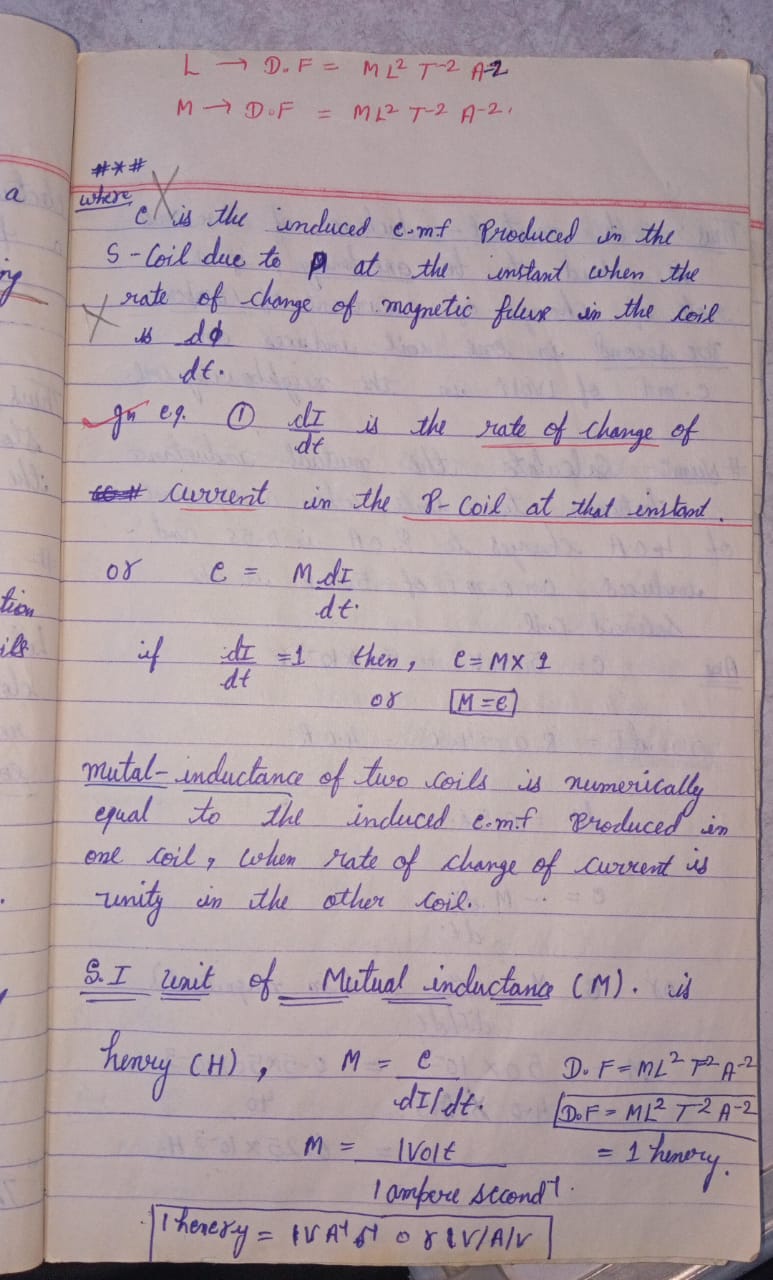 L → D.F = ML² T-2 A-2
M → D.F = ML² T-2 A-2.
#*#
where,
e is the induced e.mf Produced in the
S-Coil due to P at the instant when the
rate of change of magnetic fulux in the coil
is dϕ
dt.
e.g. ① dI/dt is the rate of change of
current in the P-Coil at that instant.
or e = M dI/dt.
if dI/dt = 1 then, e = M x 1
or M = e
mutal-inductance of two coils is numerically
equal to the induced e.m.f Produced in
one coil, when rate of change of current is
unity in the other coil.
S.I unit of Mutual inductance (M). is
henry (H), M = e/dI/dt. D.F = ML² T-2 A-2
D.F = ML² T-2 A-2
M = 1Volt/1 ampere second-1. = 1 henery.
1 henery = 1V A-1 s-1 or 1V/A/V
a
ng
tion
ils